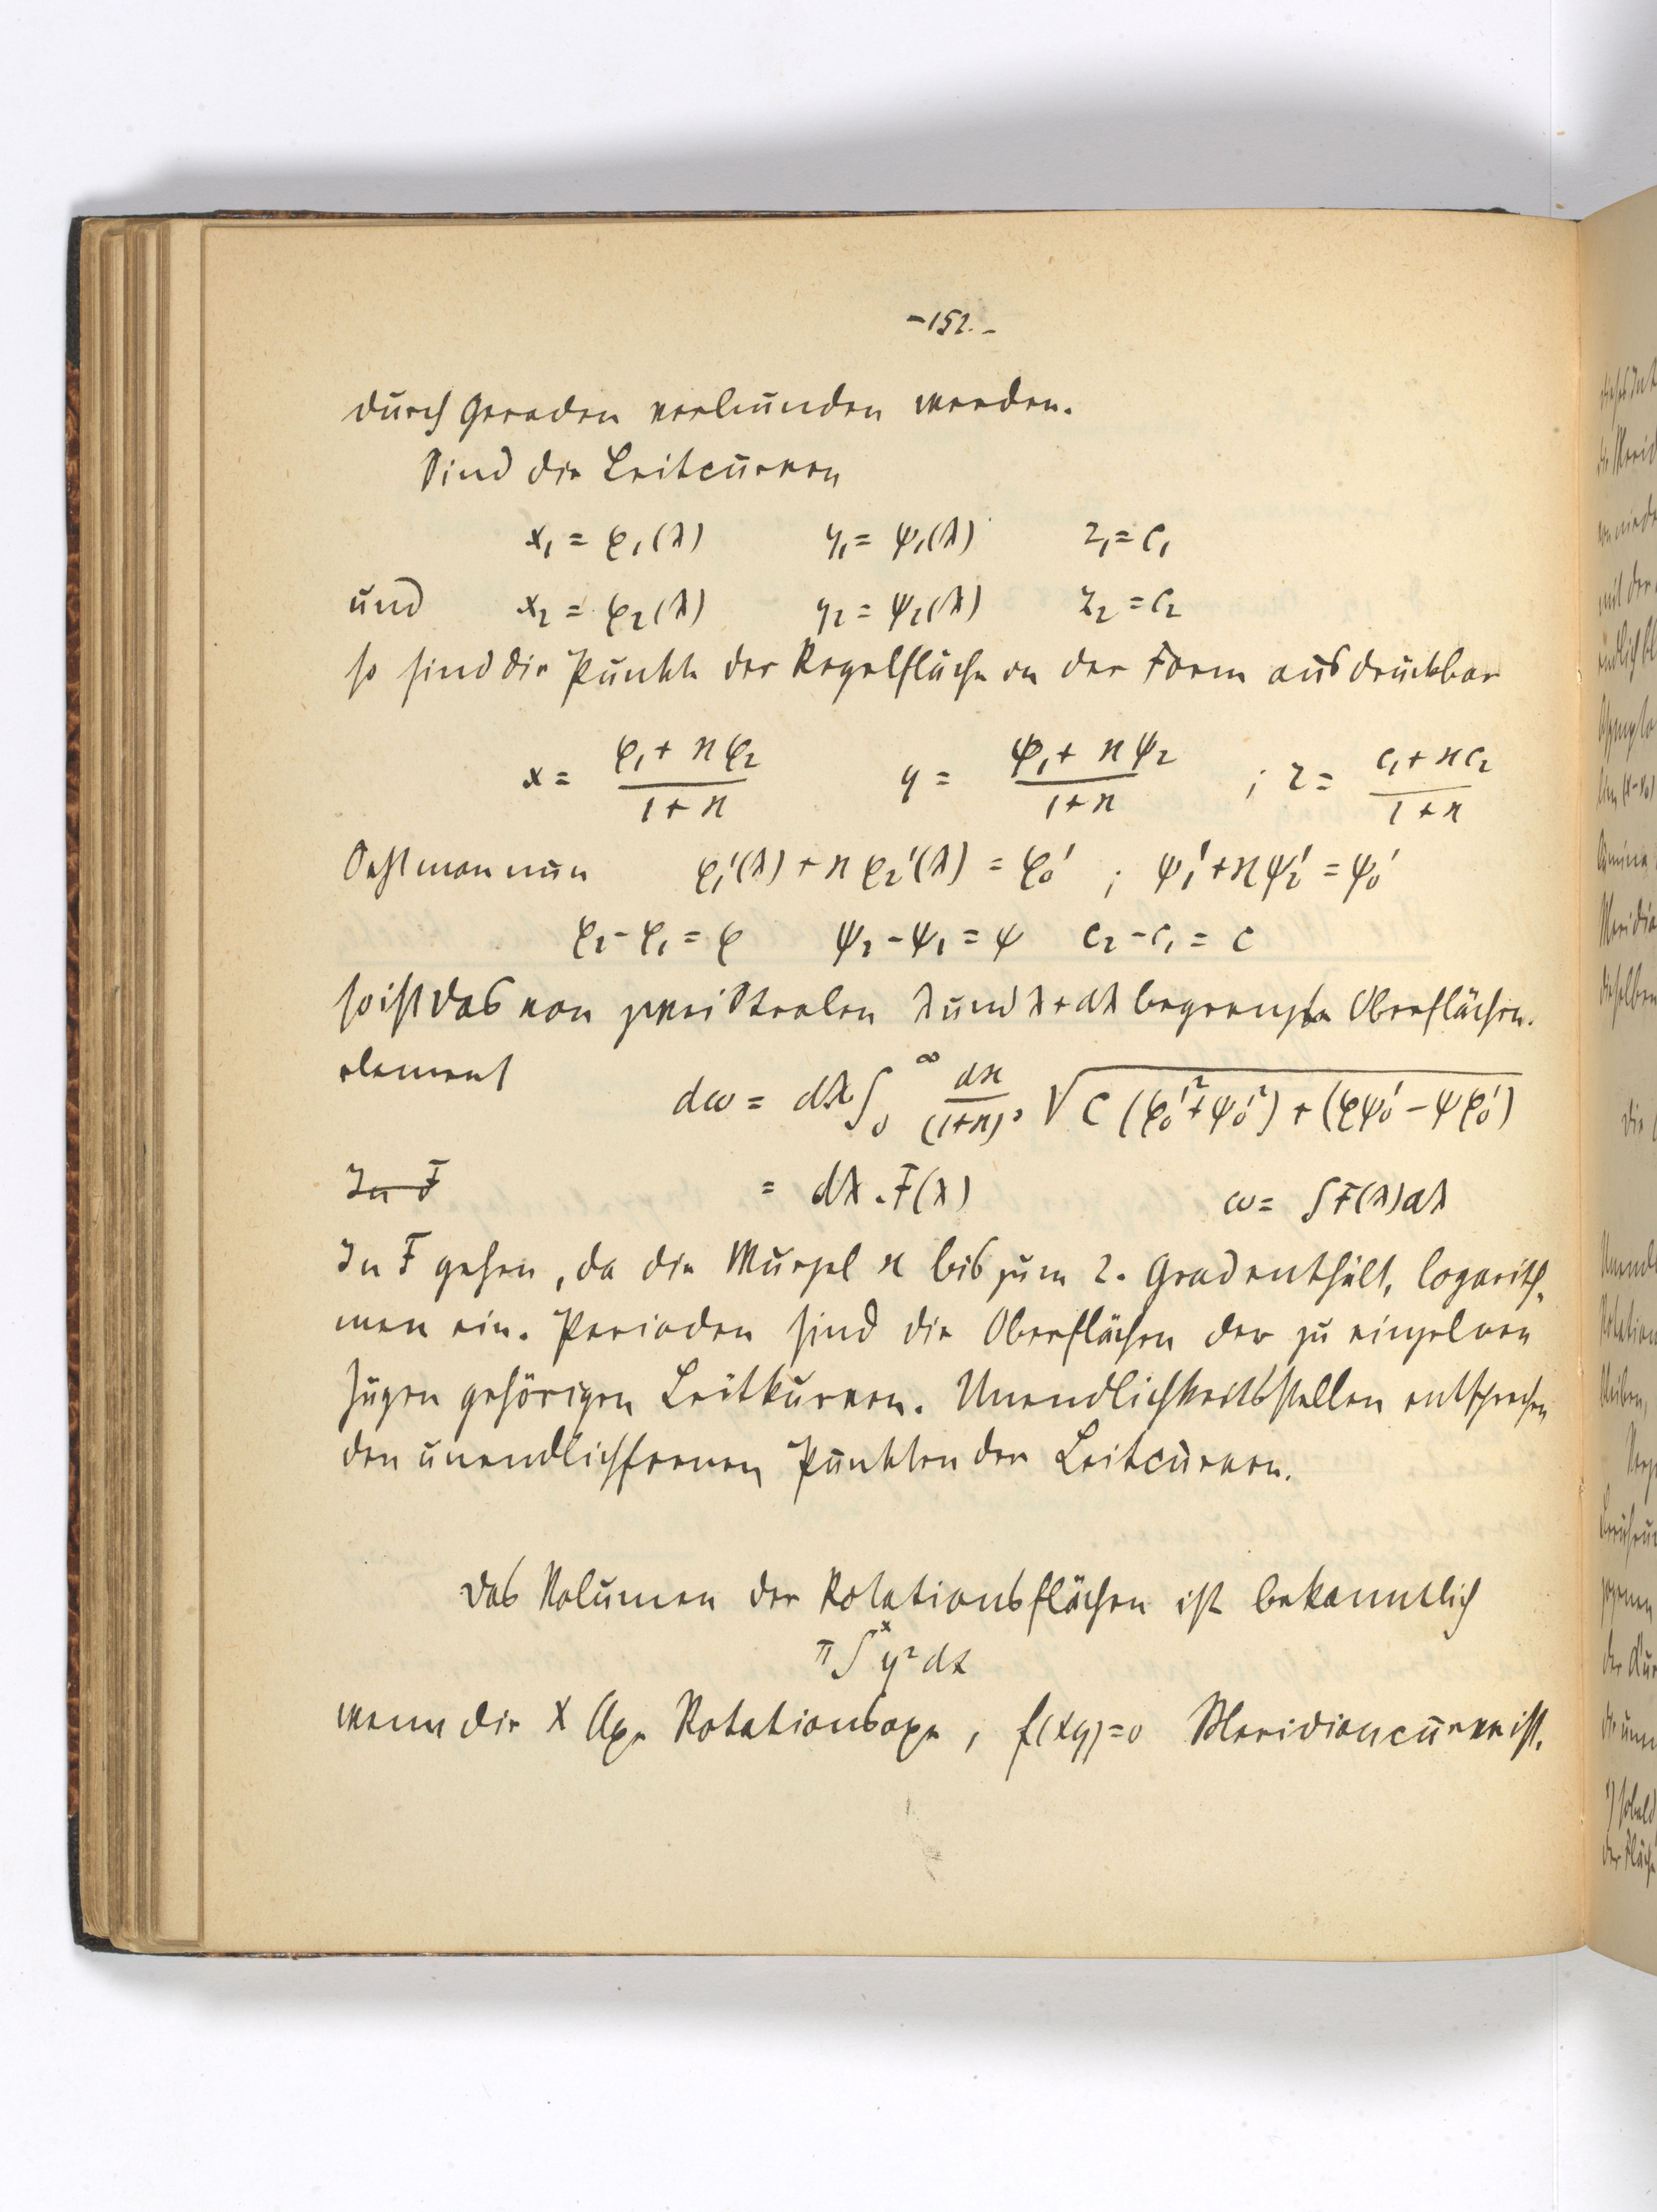 -152.-
durch Geraden verbunden werden.
Sind die Leitcurven
x₁ = φ₁(λ) y₁ = ψ₁(λ) z₁ = c₁
und x₂ = φ₂(λ) y₂ = ψ₂(λ) z₂ = c₂
so sind die Punkte der Regelfläche in der Form ausdrückbar
x = (φ₁ + ϰφ₂)/(1+ϰ) y = (ψ₁ + ϰψ₂)/(1+ϰ) ; z = (c₁+ϰc₂)/(1+ϰ)
Setzt man nun φ₁'(λ) + ϰφ₂'(λ) = φ₀' ; ψ₁' + ϰψ₂' = ψ₀'
φ₂ - φ₁ = φ ψ₂ - ψ₁ = ψ c₂ - c₁ = c
so ist das von zwei Stralen λ und λ+dλ begrenzte Oberflächen-
element dω = dλ ∫₀^∞ dϰ/(1+ϰ)³ √(c (φ₀'² + ψ₀'²) + (φψ₀' - ψφ₀'))
In F = dλ . F(λ) ω = ∫F(λ)dλ
In F gehen, da die Wurzel ϰ bis zum 2. Grad enthält, Logarith-
men ein. Perioden sind die Oberflächen der zu einzelnen
Zügen gehörigen Leitkurven. Unendlichkeitsstellen entsprechen
den unendlichfernen Punkten der Leitcurven.
Das Volumen der Rotationsflächen ist bekanntlich
π∫ˣ y² dx
wenn die X Axe Rotationsaxe, f(xy)=0 Meridiancurve ist.